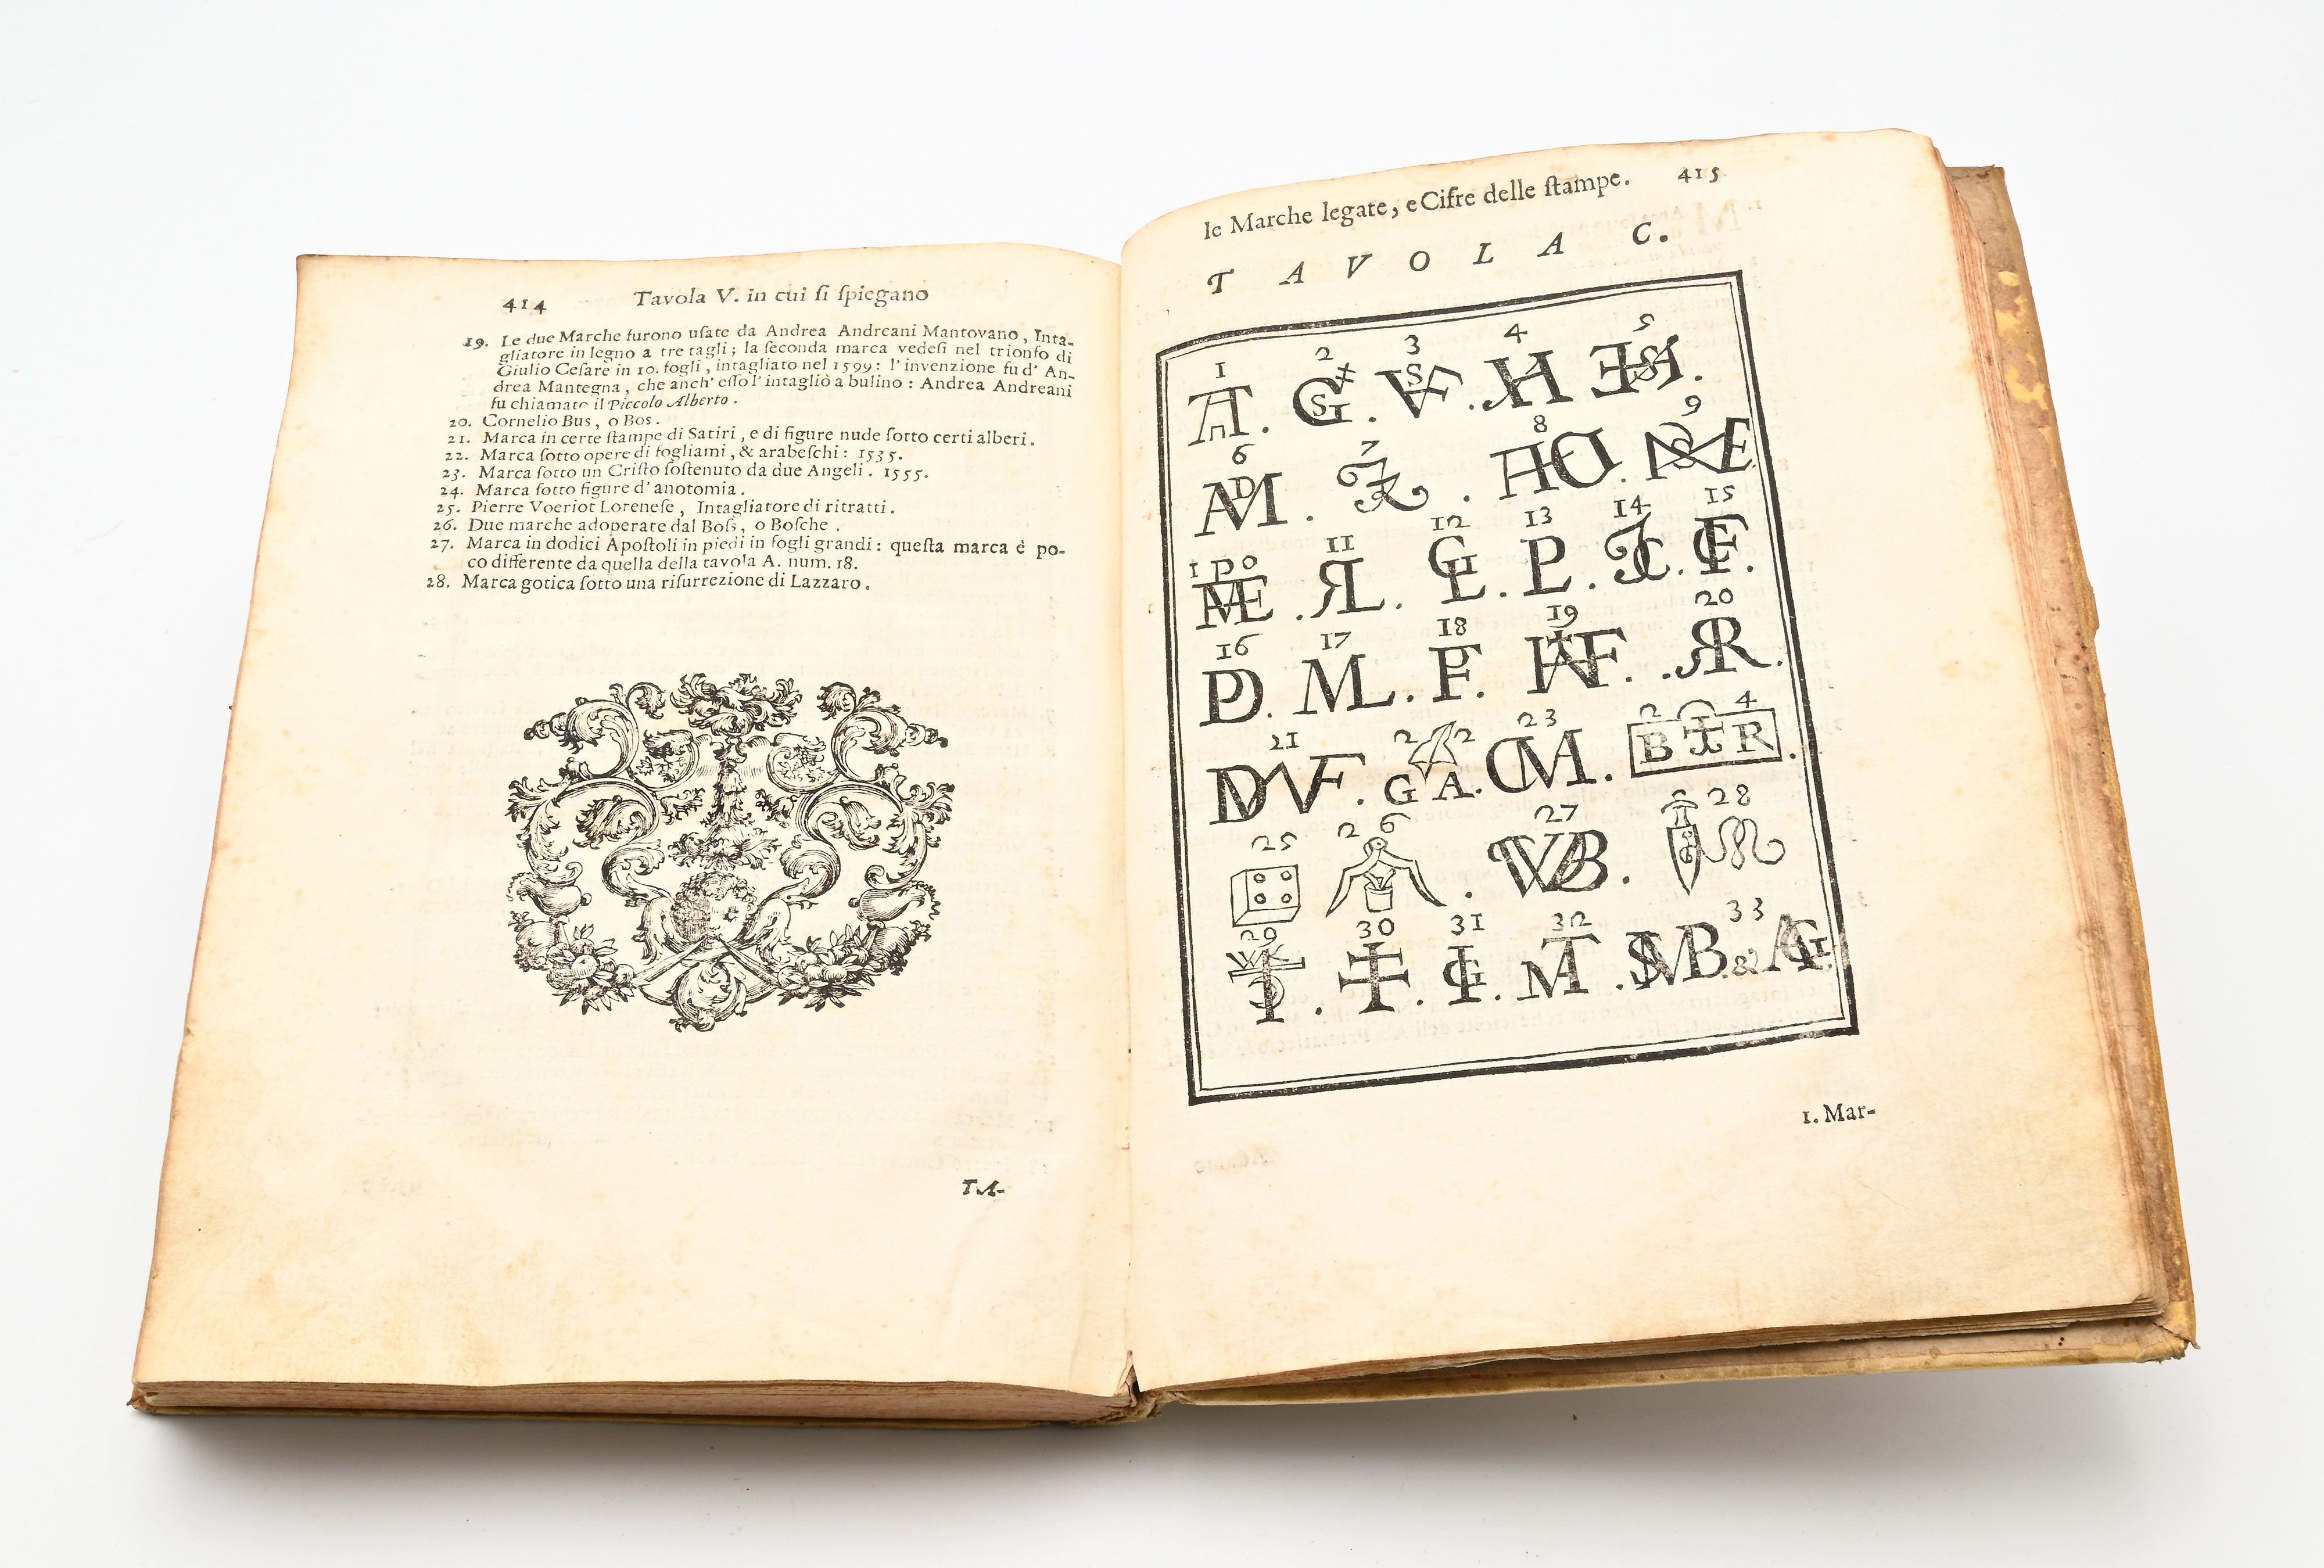 414 Tavola V. in cui ſi ſpiegano
19. Le due Marche furono uſate da Andrea Andreani Mantovano, Inta-
gliatore in legno a tre tagli; la ſeconda marca vedeſi nel trionfo di
Giulio Ceſare in 10. fogli, intagliato nel 1599: l'invenzione fu d' An-
drea Mantegna, che anch' eſſo l'intagliò a bulino: Andrea Andreani
fu chiamato il Piccolo Alberto.
20. Cornelio Bus, o Bos.
21. Marca in certe ſtampe di Satiri, e di figure nude ſotto certi alberi.
22. Marca ſotto opere di fogliami, & arabeſchi: 1535.
23. Marca ſotto un Criſto ſoſtenuto da due Angeli. 1555.
24. Marca ſotto figure d'anotomia.
25. Pierre Voeriot Loreneſe, Intagliatore di ritratti.
26. Due marche adoperate dal Boſs, o Boſche.
27. Marca in dodici Apoſtoli in piedi in fogli grandi: queſta marca è po-
co differente da quella della tavola A. num. 18.
28. Marca gotica ſotto una riſurrezione di Lazzaro.
TA-
le Marche legate, e Cifre delle ſtampe. 415
TAVOLA C.
1 2 3 4 5
6 7 8 9
10 11 12 13 14 15
16 17 18 19 20
21 22 23 24
G A. B R
25 26 27 28
29 30 31 32 33
1. Mar-